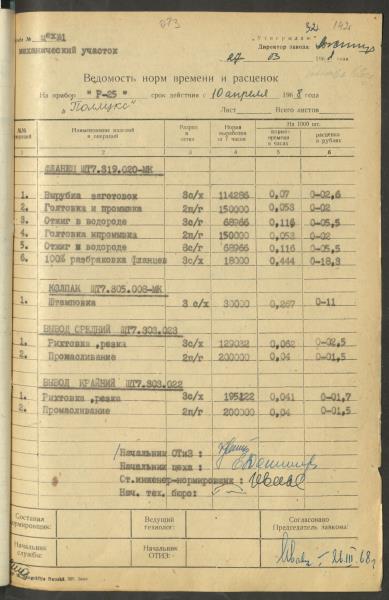 073
32 142
Цех №1
механический участок
„Утверждаю"
Директор завода:
27 03 196 г.
Ведомость норм времени и расценок
На прибор "Р-25" срок действия с 10 апреля 1968 года
"Полицкс" Лист Всего листов
На 1000 шт.
№№ операций Наименование изделий и операций Разряд и сетка Норма выработки за 7 часов норма-времени в часах расценка в рублях
1 2 3 4 5 6
ФЛАНЕЦ ЩТ7.319.020-МК
1. Вырубка заготовок 3с/х 114286 0,07 0-02,6
2. Голтовка и промывка 2п/г 150000 0,053 0-02
3. Отжиг в водороде 3с/г 68966 0,116 0-05,5
4. Голтовка ипромывка 2п/г 150000 0,053 0-02
5. Отжиг в водороде 3с/г 68966 0,116 0-05,5
6. 100% разбраковка фланцев 3с/х 18000 0,444 0-18,3
КОЛПАК ЩТ7.305.008-МК
1. Штамповка 3 с/х 30000 0,267 0-11
ВЫВОД СРЕДНИЙ ЩТ7.303.023
1. Рихтовка ,резка 3с/х 129032 0,062 0-02,5
2. Промасливание 2п/г 200000 0,04 0-01,5
ВЫВОД КРАЙНИЙ ЩТ7.303.022
1. Рихтовка ,резка 3с/х 195122 0,041 0-01,7
2. Промасливание 2п/г 200000 0,04 0-01,5
Начальник ОТиЗ :
Начальник цеха :
Ст.инженер-нормировщик :
Нач. тех. бюро:
Составил нормировщик: Ведущий технолог: Согласовано Председатель завкома:
Начальник службы: Начальник ОТИЗ: 26.III.68г.